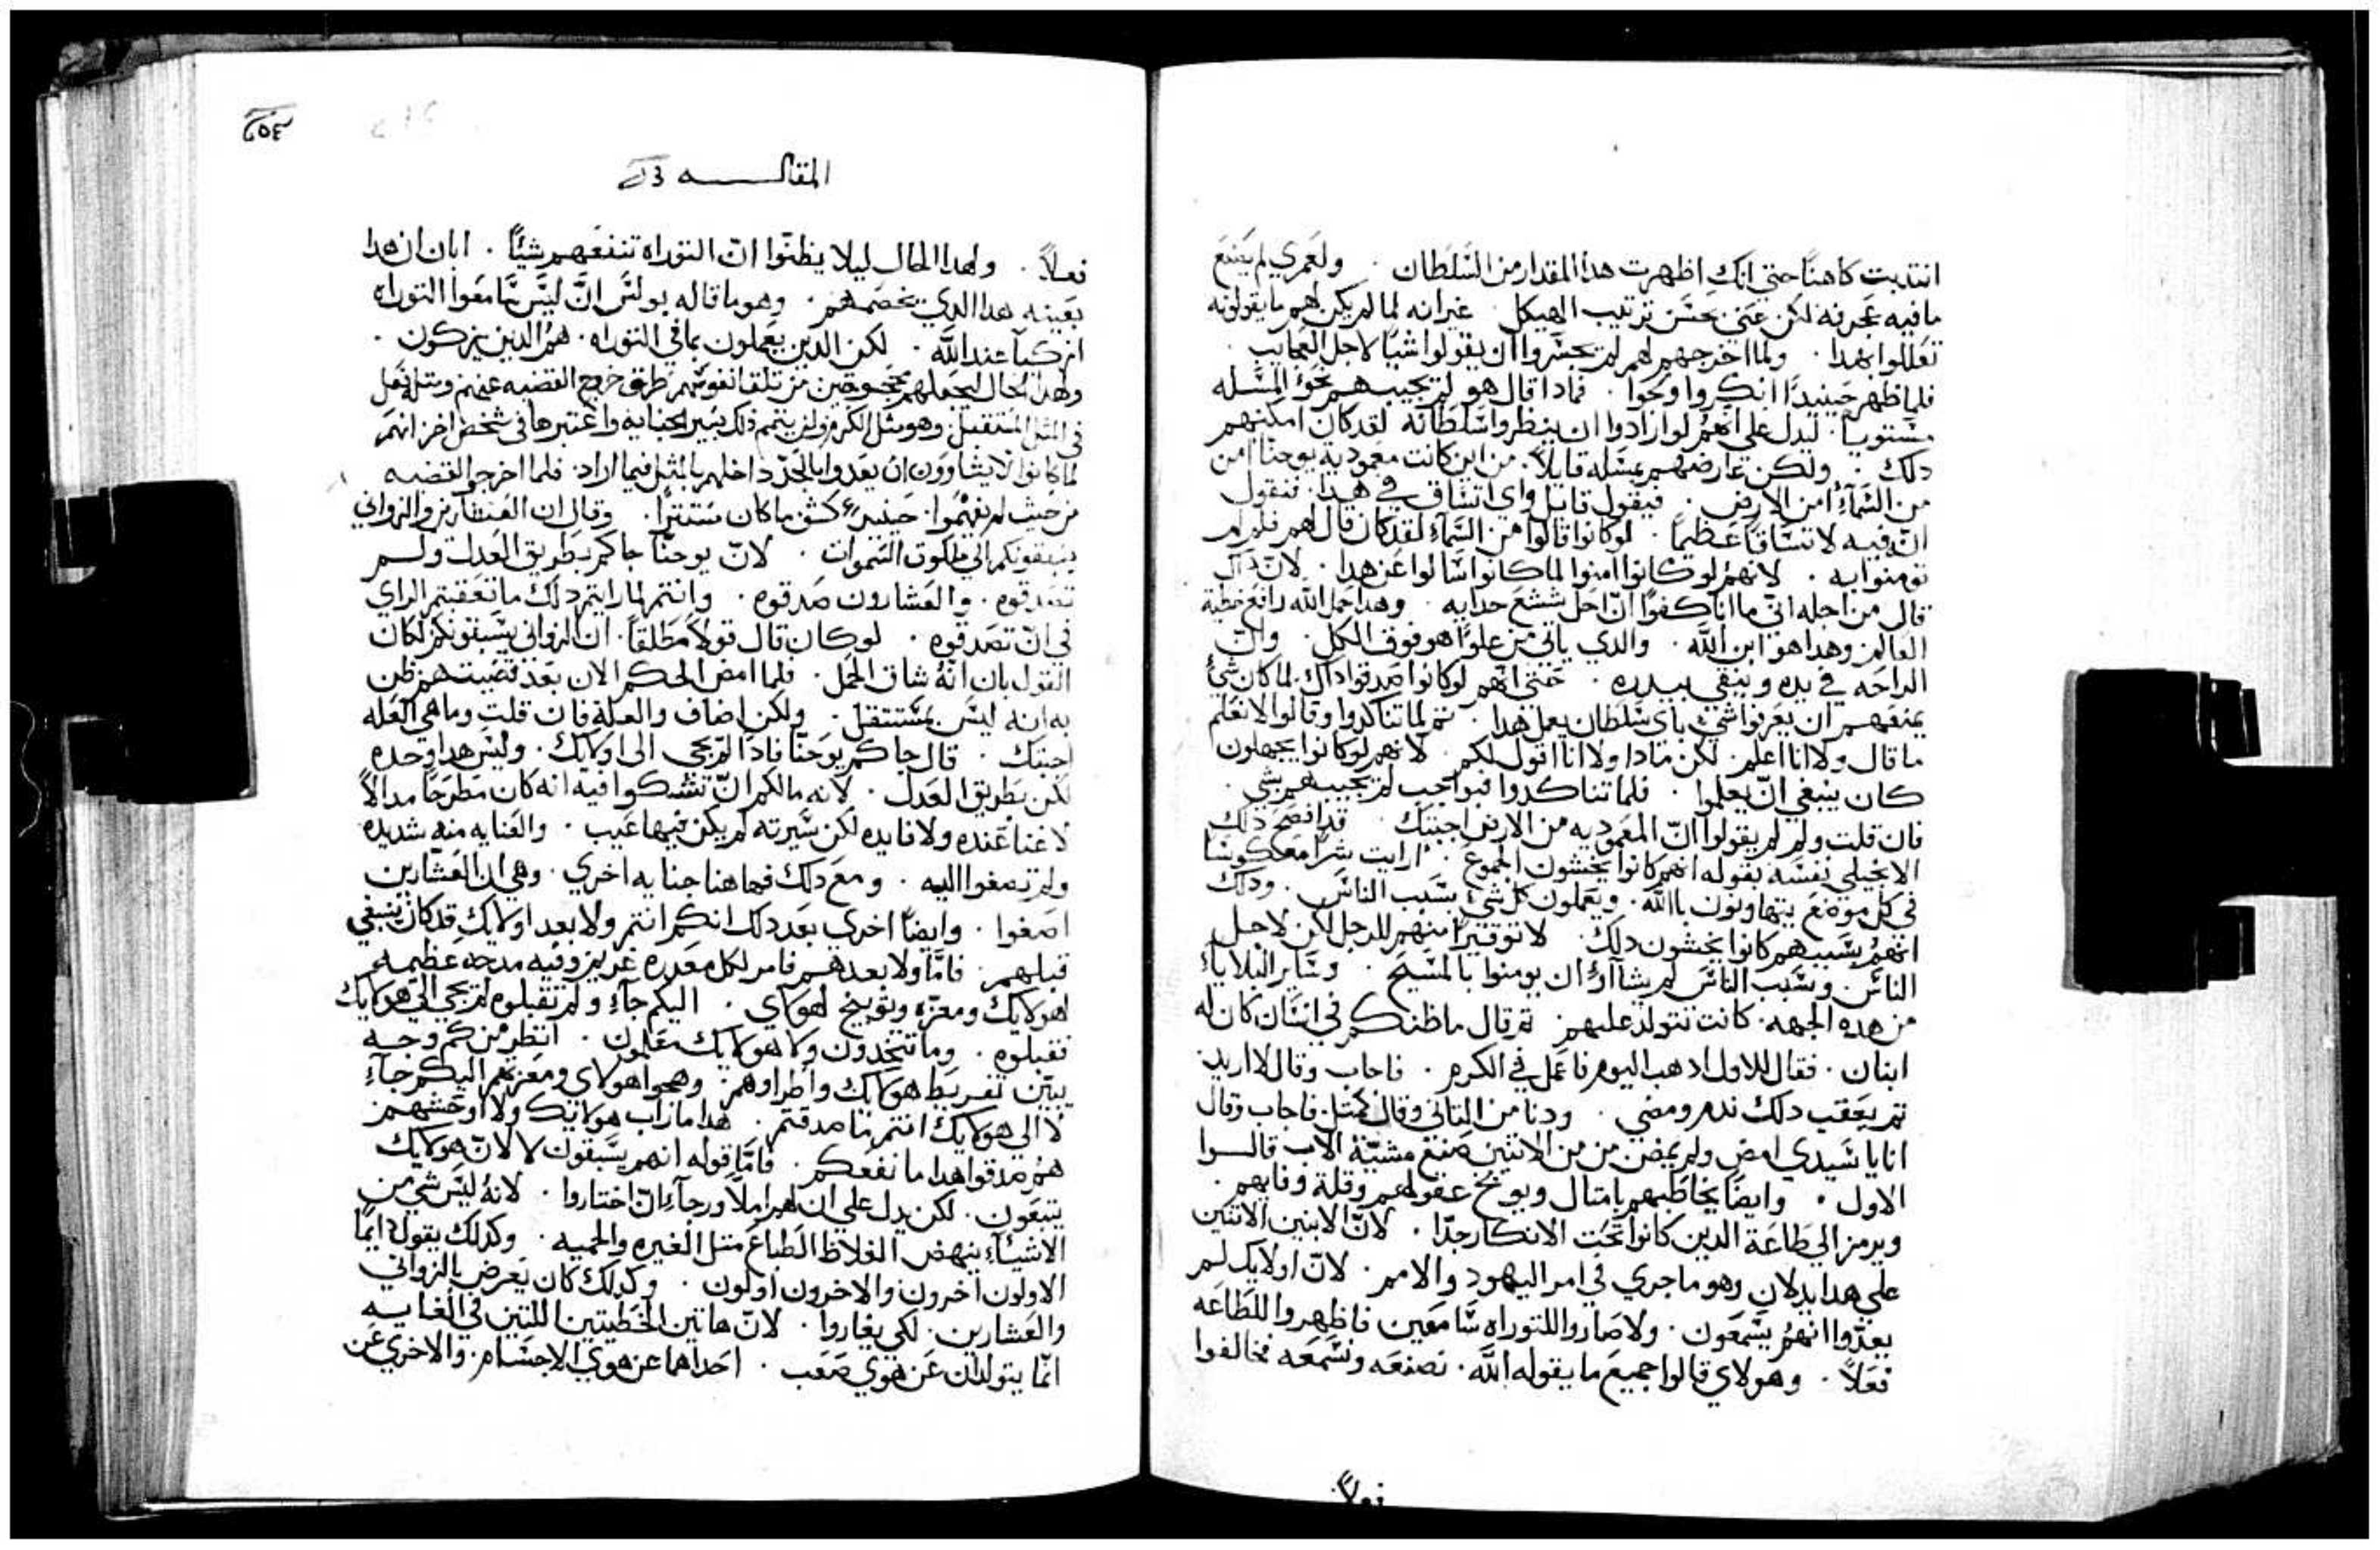 انتدبت كاهنًا حتي انك اظهرت هدا المقدار من السلطان . ولعمري لم يصنع
ما فيه عجرفه لكن عني بحسن ترتيب الهيكل . غير انه لما لم يكن لهم ما يقولونه
تعللوا بهدا . ولما اخرجهم لهم لم يجسروا ان يقولوا شيًا لاجل العجايب .
فلما ظهر حينيدًا انكروا ومحوا . فمادا قال هو لم يجيبهم نحو المسله
مستويا . ليدل علي انهم لو ارادوا ان ينظروا سلطانه لقد كان امكنهم
دلك . ولكن عارضهم بمسله قايلاً . من اين كانت معمودية يوحنا امن
من السمآءِ امن الارض . فيقول قايل واي اتساق في هدا . فنقول
انّ فيه لاتساقا عظيماً . لو كانوا قالوا من السماءِ لقد كان قال لهم فلم لم
تومنوا به . لانهم لو كانوا امنوا لما كانوا سالوا عن هدا . لانّ داك
قال من اجله انّي ما انا كفوًا انّ احل شسع حدايه . وهدا حمل الله رافع خطية
العالم وهدا هو ابن الله . والدي ياتي من علوٍّا هو فوق الكل . وانّ
الراحه في يده وينقي بيدره . حتي انهم لو كانوا صدقوا داك لما كان شيءٌ
يمنعهم ان يعرفوا شيءٌ باي سلطان يعمل هدا . تم لما تناكدوا وقالوا لا نعلم
ما قال ولا انا اعلم . لكن مادا ولا انا اقول لكم . لانهم لو كانوا يجهلون
كان ينبغي انّ يعلموا . فلما تناكدوا فبواجب لم يجيبهم شي .
فان قلت ولم لم يقولوا انّ المعموديه من الارض اجبتك . قد افصح دلك
الانجيلي نفسه بقوله انهم كانوا يخشون الجموع . ارايت شرًا معكوسًا
في كل موضع يتهاونون بالله . ويعملون كل شيءٌ بسبب الناس . ودلك
انهم بسببهم كانوا يخشون دلك . لا توقيرًا منهم للرجل لكن لاجل
الناس . وبسبب الناس لم يشآاوءُا ان يومنوا بالمسيح . وسآير البلاياءِ
من هده الجهه . كانت تتولد عليهم . تم قال ما ظنكم في انسان كان له
ابنان . فقال للاول ادهب اليوم فاعمل في الكرم . فاجاب وقال لا اريد
تم بعقب دلك ندم ومضي . ودنا من التاني وقال كمتل فاجاب وقال
انا يا سيدي امض ولم يمض من من الاتنين صنع مشيّة الاب قالوا
الاول . وايضًا يخاطبهم بامتال ويوبخ عقولهم وقلة وفايهم .
ويرمز الي طاعة الدين كانوا تحت الانكار جدّا . لانّ الابنين الاتنين
علي هدا يدلان وهو ما جري في امر اليهود والامم . لانّ اولايك لم
يعدّوا انهم يسمعون . ولا صاروا للتوراه سامعين فاظهروا للطاعه
فعلاً . وهولاي قالوا جميع ما يقوله الله . نصنعه ونسمعه فخالفوا
فعلاً.
المقالــــــــه
فعلاً . ولهدا الحال ليلا يظنّوا انّ التوراه تنفعهم شيئًا . ابان ان هدا
بعينه هدا الدي يخصمهم . وهو ما قاله بولس انّ ليس سامعوا التوراه
ازكيآ عند الله . لكن الدين يعملون بما في التوراه . هم الدين يزكون .
ولهدا الحال ليجعلهم محجوجين من تلقا نفوسهم طرق خروج القضيه عنهم ومتله فعل
في المتل المستقبل . وهو متل الكرم
لما كانوا لا يشاوون ان يعدوا بالجد داخلهم بالمتل فيما اراد . فلما اخرجوا القضيه
من حيث لم يفهموا . حينيدٍ كشف ما كان مستترًا . وقال ان العشارين والزواني
يسبقونكم الي ملكوت السموات . لانّ يوحنّا جاكم بطريق العدل ولـم
تصدقوه . والعشارون صدقوه . وانتم لما رايتم دلك ما تعقبتم الراي
في انّ تصدقوه . لو كان قال قولاً مطلقا . ان الزواني يسبقونكم لكان
القول بان انّهُ شاق الحمل . فلما امض الحكم الان بعد قضيت هم ظن
به انه ليس بمستتقل . ولكن اضاف والعلة فان قلت وما هي العله
اجبتك . قال جاكم يوحنّا فادًا لم يجي الي اولايك . وليس هدا وحده
لكن بطريق العدل . لانه ما لكم انّ تتشكوا فيه انه كان مطرحًا مدالاً
لا غنا عنده ولا فايده لكن سيرته لم يكن فيها عيب . والعنايه منه شديده
ولم تصغوا اليه . ومع دلك فها هنا جنايه اخري . وهي ان العشارين
اصغوا . وايضًا اخري بعد دلك انكم انتم ولا بعد اولايك قد كان ينبغي
قبلهم . فامّا ولا بعدهم فامر لكل معدره عزيز وفيه مدحه عظيمه
لهولايك ومعزّه وتوبيخ لهولاي . اليكم جآءِ ولم تقبلوه لم يجي الي هولايك
فقبلوه . وما تتخدون ولا هولايك معلمون . انظر من كم وجـه
يبيّن تفريط هولايك واطراوهم . وهجوا هولاي ومعزّتهم اليكم جآءِ
لا الي هولايك انتم ما صدقتم . هدا ما راب هولايك ولا اوحشهم
هم صدقوا هدا ما نفعكم . فامّا قوله انهم يسبقون لا لانّ هولايك
يتبعون . لكن يدل علي ان لهم املاً ورجآءِ انّ اختاروا . لانهُ ليس شي من
الاشيآءِ ينهض الغلاظ الطباع متل الغيره والحميه . وكدلك يقول دايمًا
الاولون اخرون والاخرون اولون . وكدلك كان يعرض بالزواني
والعشارين . لكي يغاروا . لانّ هاتين الخطيتين اللتين في الغايه
انّما يتولدان عن هوي صعب . احداهما عن هوي الاجسام . والاخري عن